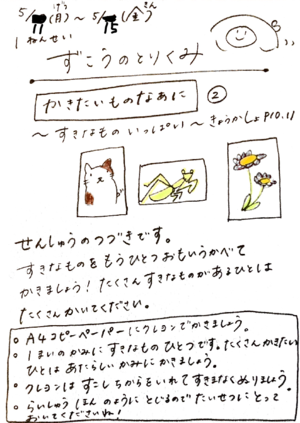 5/11(月)げつ〜5/15(金)きん
1ねんせい
ずこうのとりくみ
かきたいものなあに ②
〜すきなものいっぱい〜きょうかしょP10.11
せんしゅうのつづきです。
すきなものをもうひとつおもいうかべて
かきましょう!たくさんすきなものがあるひとは
たくさんかいてください。
○A4コピーペーパーにクレヨンでかきましょう。
○1まいのかみにすきなものひとつです。たくさんかきたい
ひとはあたらしいかみにかきましょう。
○クレヨンはすこしちからをいれてすきまなくぬりましょう。
○らいしゅうほんのようにとじるのでたいせつにとって
おいてくださいね!